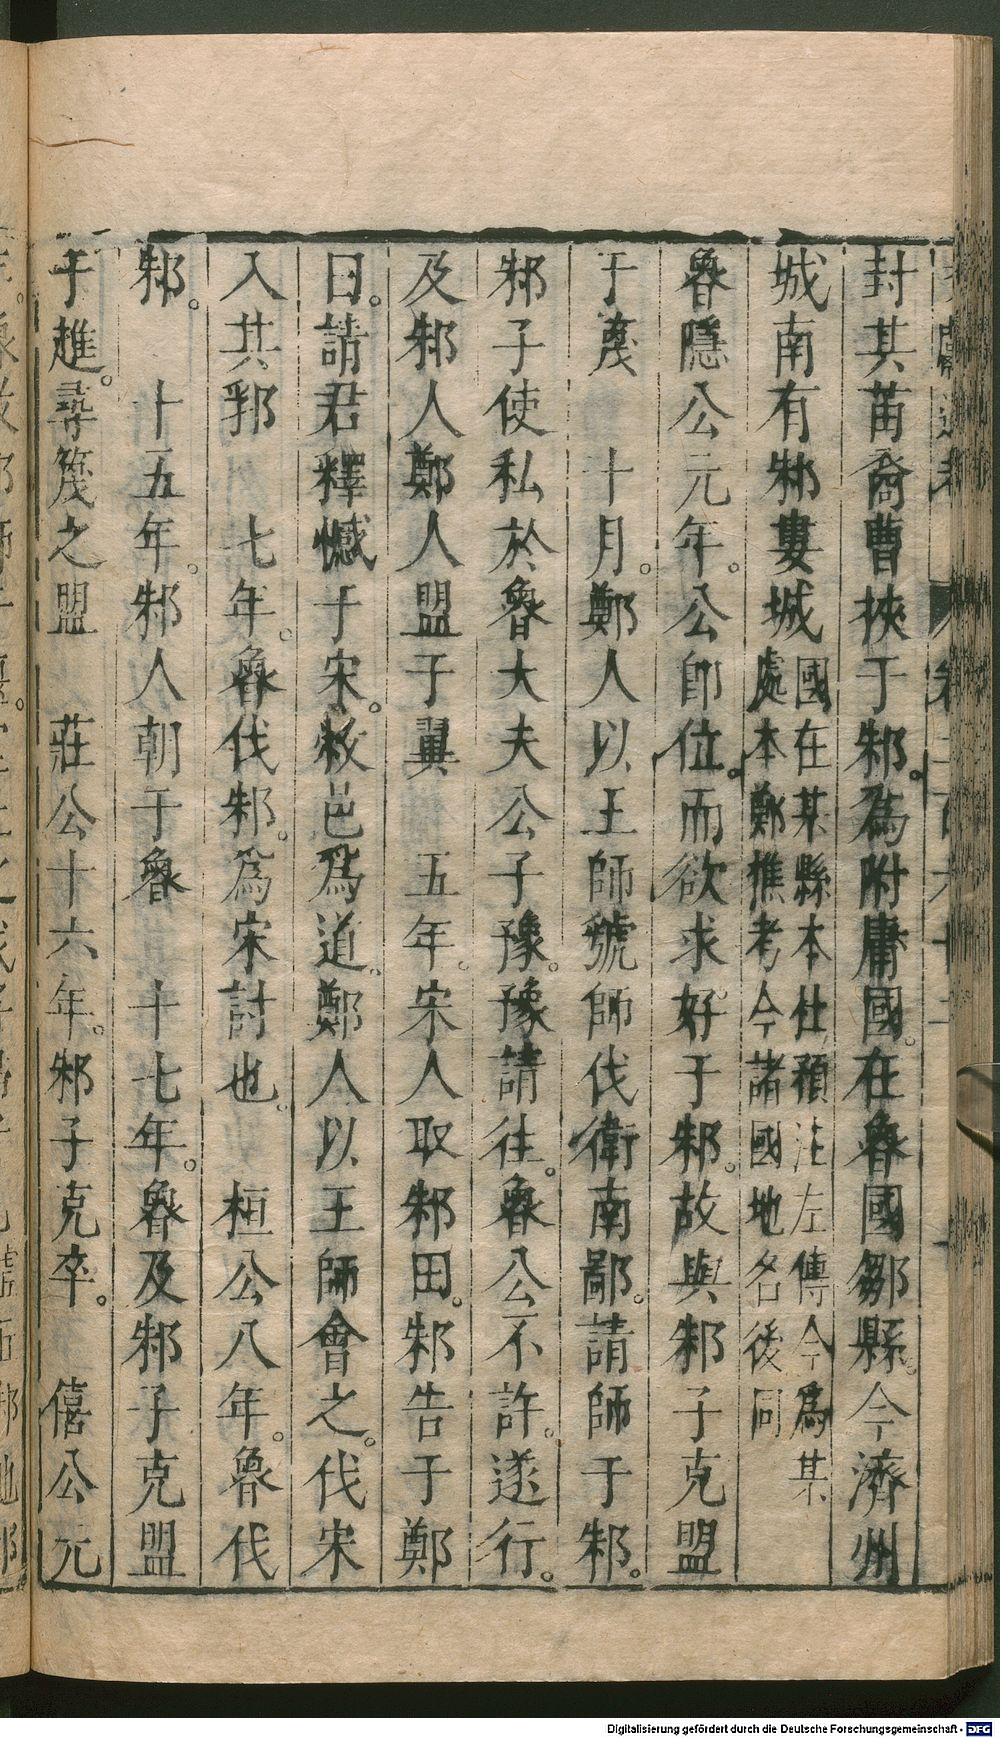 封其苗裔曹挾于邾。爲附庸國。在魯國鄒縣。今濟州
城南有邾婁城國在某縣本杜預注左傳今爲某
處本鄭樵考今諸國地名後同
魯隱公元年。公卽位。而欲求好于邾。故與邾子克盟
于蔑　十月。鄭人以王師虢師伐衛南鄙。請師于邾。
邾子使私於魯大夫公子豫。豫請往。魯公不許。遂行。
及邾人鄭人盟于翼　五年。宋人取邾田。邾告于鄭
曰。請君釋憾于宋。敝邑爲道。鄭人以王師會之。伐宋
入其郛　七年。魯伐邾。爲宋討也。　桓公八年。魯伐
邾。　十五年。邾人朝于魯　十七年。魯及邾子克盟
于趡。尋篾之盟　莊公十六年。邾子克卒。　僖公元
Digitalisierung gefördert durch die Deutsche Forschungsgemeinschaft - DFG